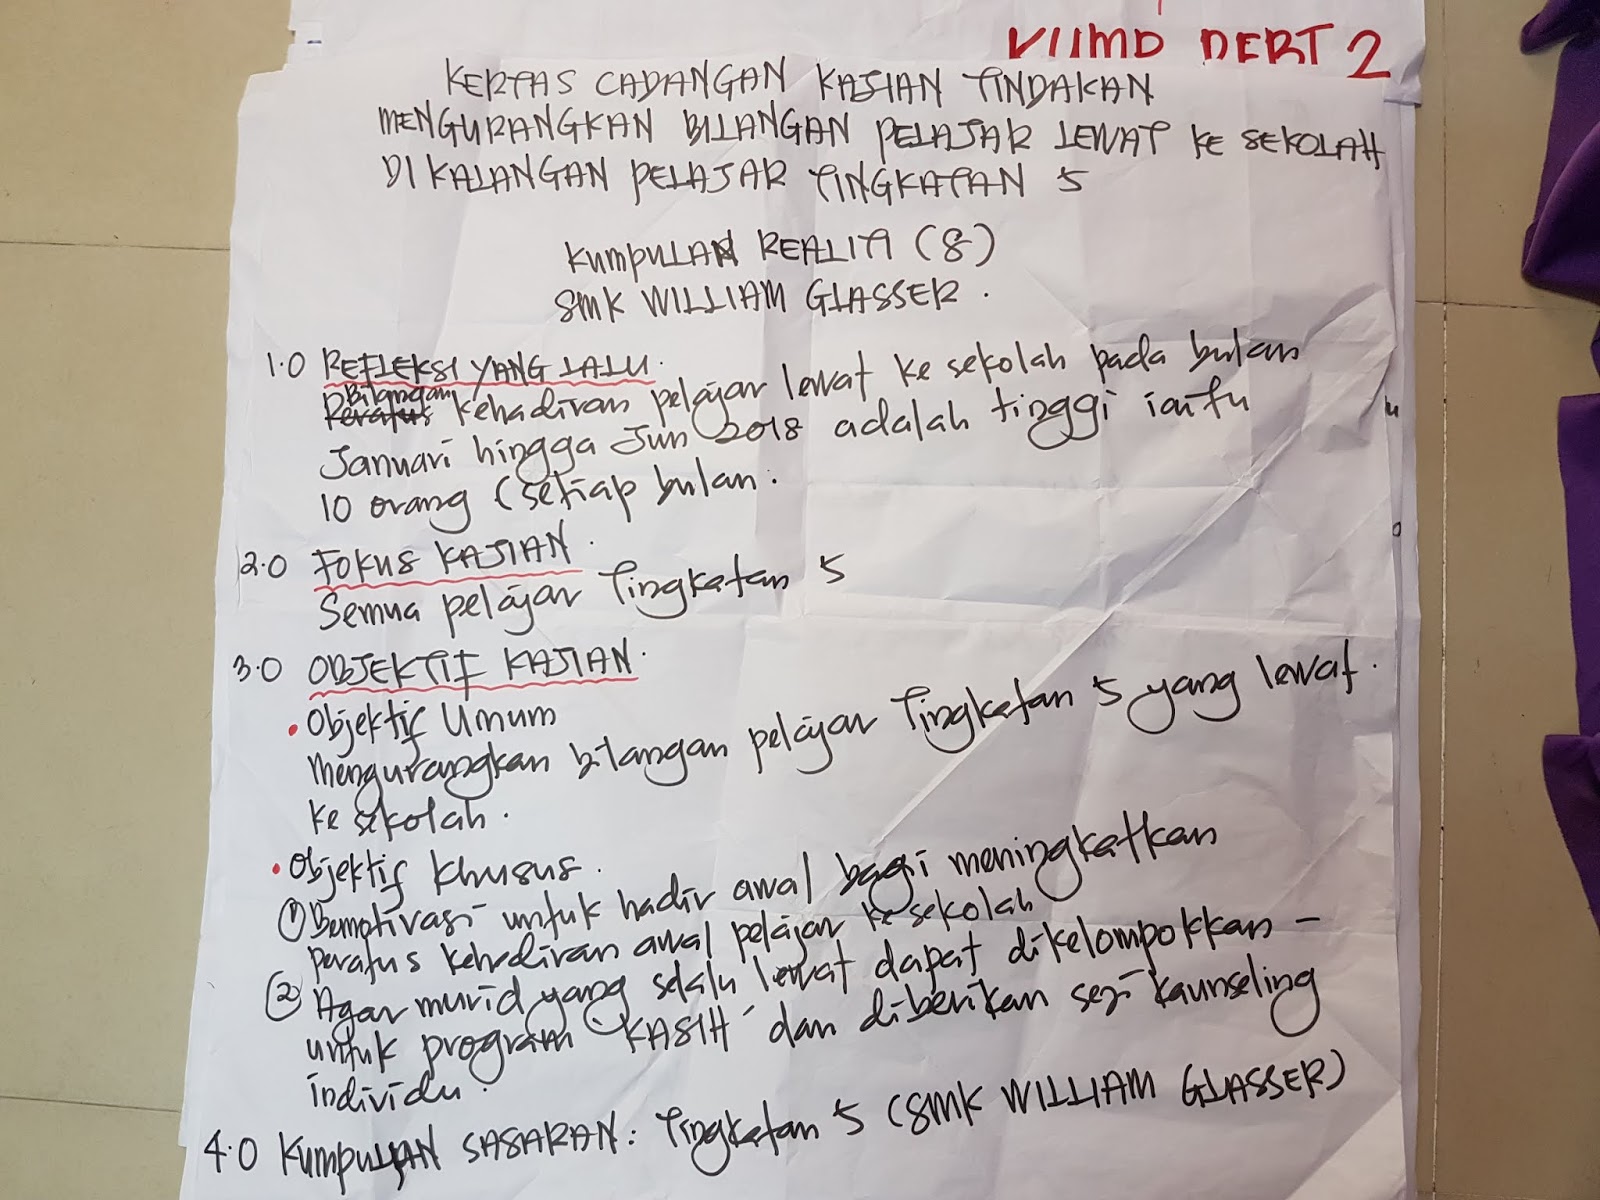 KERTAS CADANGAN KAJIAN TINDAKAN
MENGURANGKAN BILANGAN PELAJAR LEWAT KE SEKOLAH
DI KALANGAN PELAJAR TINGKATAN 5
KUMPULAN REALITI (8)
SMK WILLIAM GLASSER.
1.0 REFLEKSI YANG LALU.
Bilangan
Peratus kehadiran pelajar lewat ke sekolah pada bulan
Januari hingga Jun 2018 adalah tinggi iaitu
10 orang (setiap bulan.
2.0 FOKUS KAJIAN.
Semua pelajar Tingkatan 5
3.0 OBJEKTIF KAJIAN.
• Objektif Umum
Mengurangkan bilangan pelajar Tingkatan 5 yang lewat.
ke sekolah.
• Objektif Khusus.
① Bermotivasi untuk hadir awal bagi meningkatkan
peratus kehadiran awal pelajar ke sekolah
② Agar murid yang selalu lewat dapat dikelompokkan -
untuk program 'KASIH' dan diberikan sesi kaunseling
individu.
4.0 KUMPULAN SASARAN: Tingkatan 5 (SMK WILLIAM GLASSER)